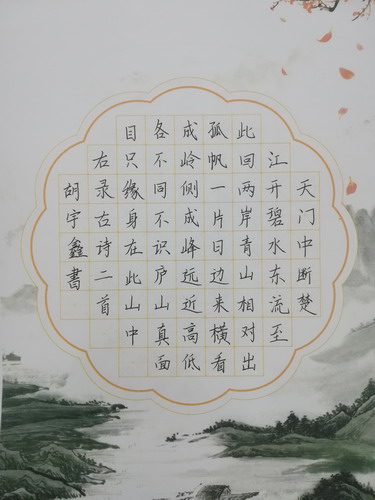 天门中断楚
江开碧水东流至
此回两岸青山相对出
孤帆一片日边来横看
成岭侧成峰远近高低
各不同不识庐山真面
目只缘身在此山中
右录古诗二首
胡宇鑫書